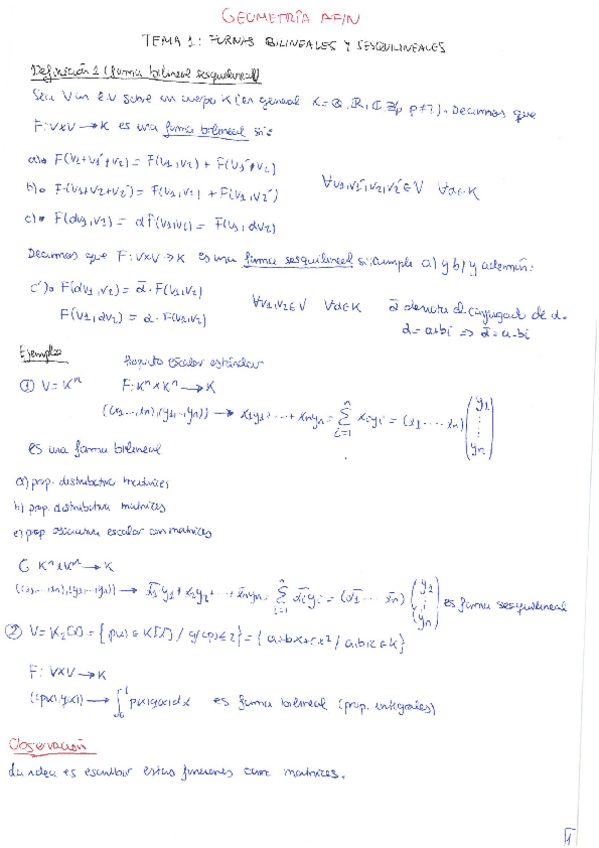 GEOMETRÍA AFIN
TEMA 1: FORMAS BILINEALES Y SESQUILINEALES
Definición 1 (forma bilineal sesquilineal)
Sea V un e.v sobre un cuerpo K (en general K = Q, R, C, Zp p≠2). Decimos que
F: V×V → K es una forma bilineal si:
a) F(v1+v1', v2) = F(v1,v2) + F(v1',v2)
b) F(v1,v2+v2') = F(v1,v2) + F(v1,v2') ∀v1,v1',v2,v2' ∈ V ∀α∈K
c) F(αv1,v2) = αF(v1,v2) = F(v1,αv2)
Decimos que F: V×V → K es una forma sesquilineal si cumple a) y b) y además:
c') F(αv1,v2) = ᾱ·F(v1,v2) ∀v1,v2∈V ∀α∈K ᾱ denota el conjugado de α.
F(v1,αv2) = α·F(v1,v2) α = a+bi => ᾱ = a-bi
Ejemplos Producto escalar estándar
① V = Kⁿ F: Kⁿ×Kⁿ → K
((x1,..,xn),(y1,..,yn)) → x1y1 + ... + xnyn = Σ(i=1, n) xiyi = (x1 ... xn) (y1 ⋮ yn)
es una forma bilineal
a) prop. distributiva matrices
b) prop. distributiva matrices
c) prop. asociativa escalar con matrices
G Kⁿ×Kⁿ → K
((x1,..,xn),(y1,..,yn)) → x̄1y1 + x̄2y2 + ... + x̄nyn = Σ(i=1, n) x̄iyi = (x̄1 ... x̄n) (y1 ⋮ yn) es forma sesquilineal
② V = K₂[x] = { p(x) ∈ K[x] / gr(p) ≤ 2 } = { a+bx+cx² / a,b,c ∈ K }
F: V×V → K
(p(x),q(x)) → ∫₀¹ p(x)q(x)dx es forma bilineal (prop. integrales)
Observación
La idea es escribir estas funciones como matrices.
1